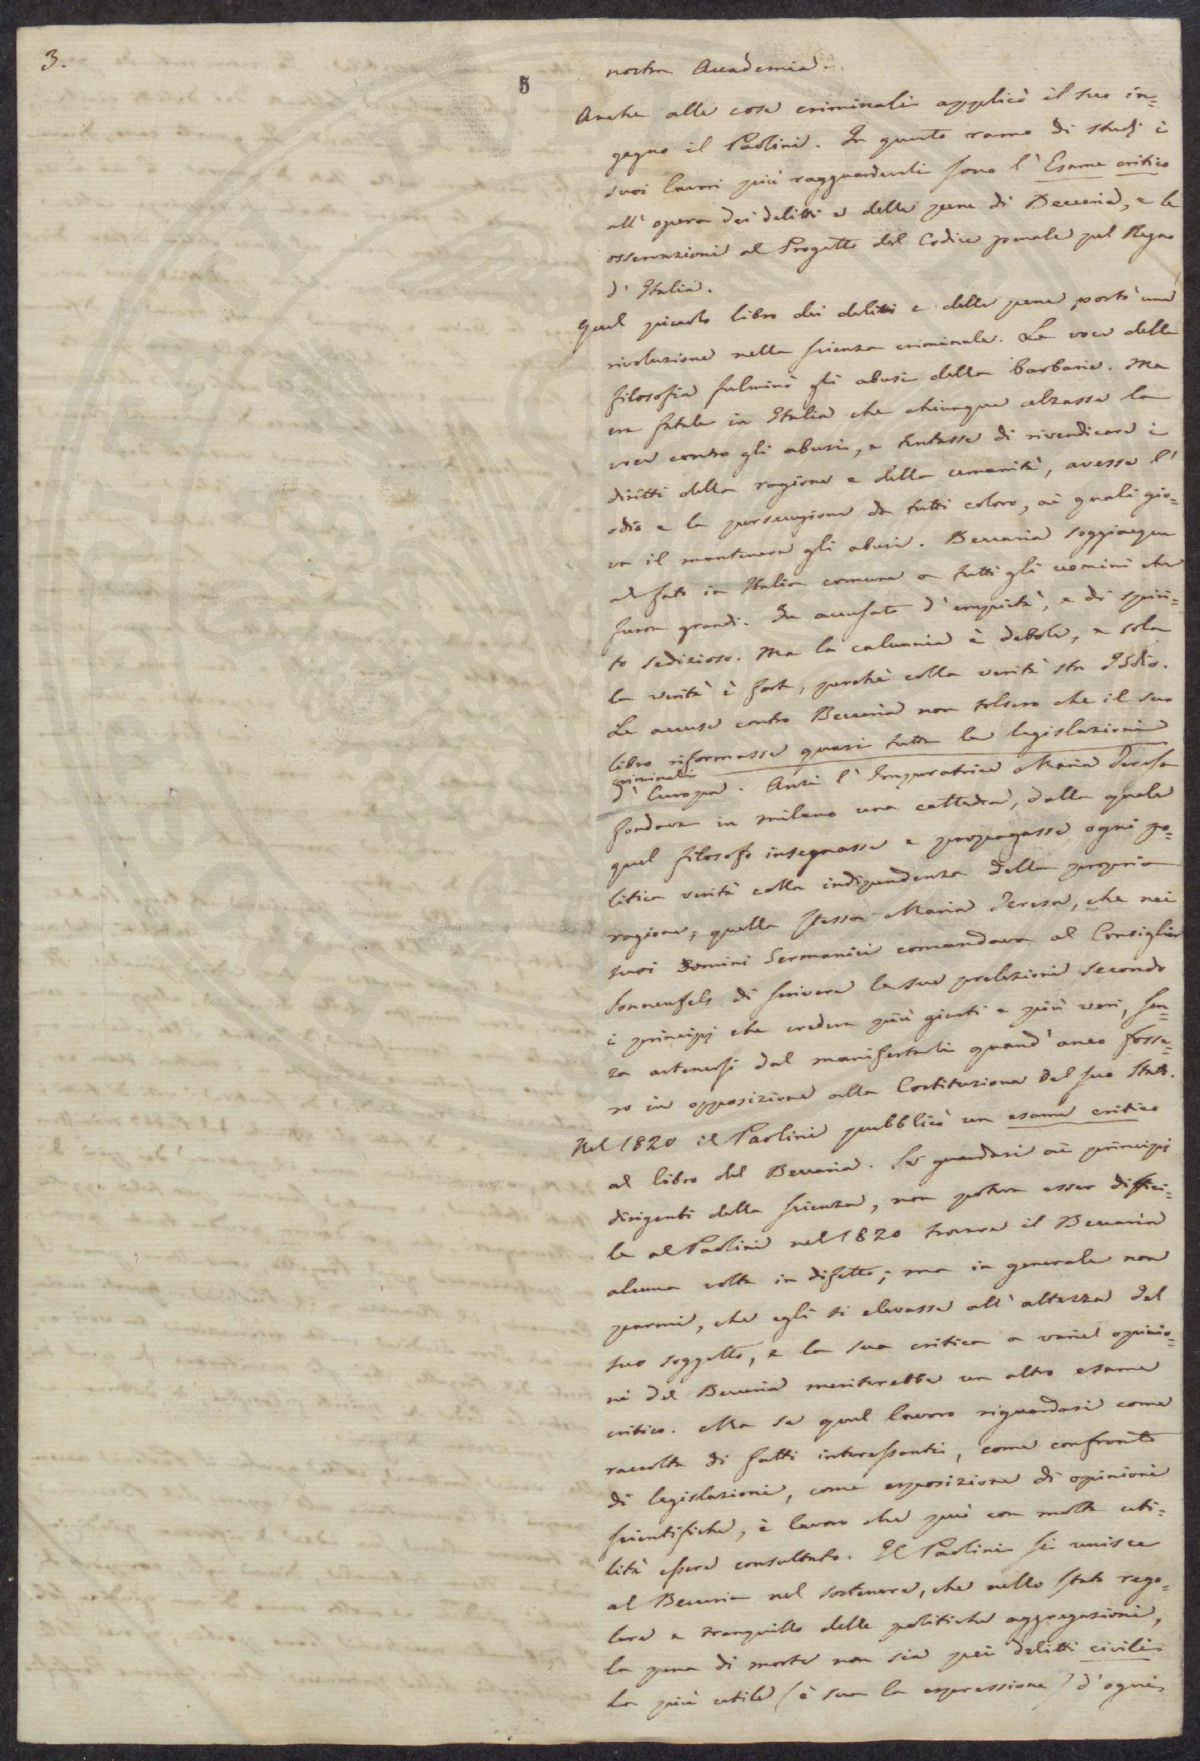 3.
5
nostra Accademia.
Anche alle cose criminali applicò il suo in=
gegno il Paolini. In questo ramo di studj i
suoi lavori più ragguardevoli sono l'Esame critico
all'opera dei delitti e delle pene di Beccaria, e le
osservazioni al Progetto del Codice penale pel Regno
d'Italia.
Quel piccolo libro dei delitti e delle pene portò una
rivoluzione nella scienza criminale. La voce della
filosofia fulminò gli abusi della barbarie. Ma
era fatale in Italia che chiunque alzasse la
voce contro gli abusi, e tentasse di rivendicare i
diritti della ragione e della umanità, avesse l'
odio e la persecuzione da tutti coloro, ai quali gio=
va il mantenere gli abusi. Beccaria soggiacque
al fato in Italia comune a tutti gli uomini che
furon grandi. Fu accusato d'empietà, e di spiri=
to sedizioso. Ma la calunnia è debole, e sola
la verità è forte, perchè colla verità sta Iddio.
Le accuse contro Beccaria non tolsero che il suo
libro riformasse quasi tutte le legislazioni
criminali
d'Europa. Anzi l'Imperatrice Maria Teresa
fondava in Milano una cattedra, dalla quale
quel filosofo insegnasse e propagasse ogni po=
litica verità colla indipendenza della propria
ragione; quella stessa Maria Teresa, che nei
suoi Domini Germanici comandava al Consiglier
Sonnenfels di scrivere le sue prelezioni secondo
i principj che credeva più giusti e più veri, sen=
za astenersi dal manifestarli quand'anco fosse=
ro in opposizione alla Costituzione del suo Stato.
Nel 1820 il Paolini pubblicò un esame critico
al libro del Beccaria. Se guardasi ai principj
dirigenti della scienza, non poteva esser diffici=
le al Paolini nel 1820 trovare il Beccaria
alcuna volta in difetto; ma in generale non
parmi, che egli si elevasse all'altezza del
suo soggetto, e la sua critica a varie opinio=
ni del Beccaria meriterebbe un altro esame
critico. Ma se quel lavoro riguardasi come
raccolta di fatti interessanti, come confronto
di legislazioni, come esposizione di opinioni
scientifiche, è lavoro che può con molta uti=
lità essere consultato. Il Paolini si unisce
al Beccaria nel sostenere, che nello stato rego=
lare e tranquillo delle politiche aggregazioni,
la pena di morte non sia pei delitti civili
la più utile (è sua la espressione) d'ogni